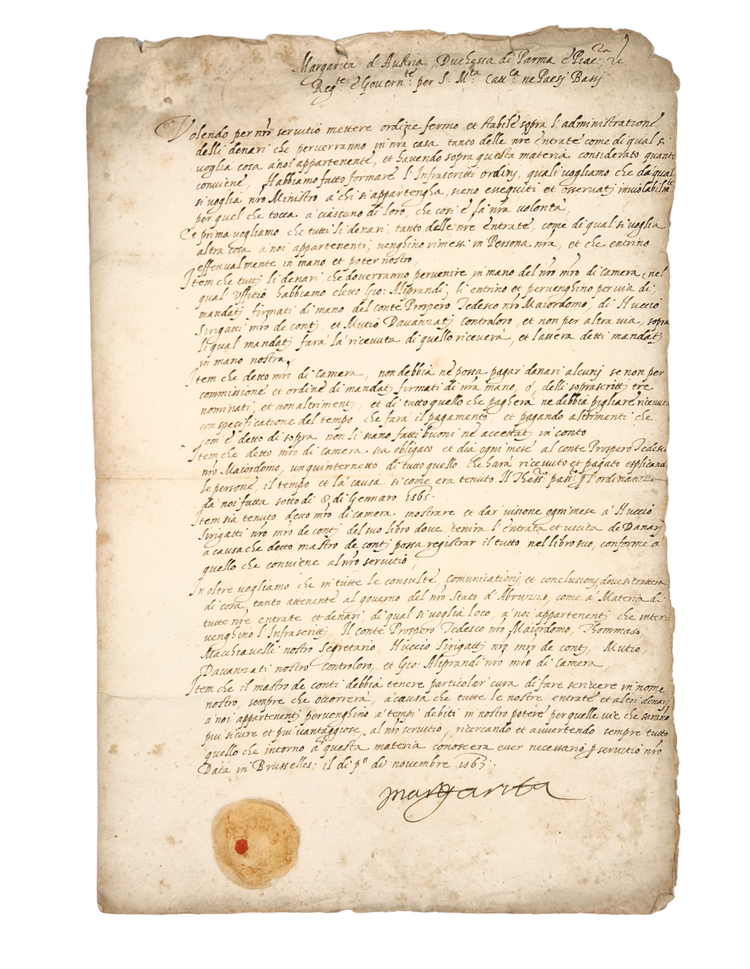 Margarita d'Austria Duchessa di Parma é Piac.za
Reg.te é Govern.te per S. M.ta Catt.ca ne Paesj Bassj
Volendo per nr̃o servitio mettere ordine fermo et stabile sopra l'administratione
delli denari che perverranno in nr̃a casa tanto delle nr̃e entrate come di qual si
voglia cosa à noi appartenente, et havendo sopra questa materia considerato quanto
conviene, Habbiamo fatto formare l'Infrascritti ordinj, quali vogliamo che da qual
si voglia nr̃o Ministro à chi si appartengha, sieno esequiti et osservatj inviolabilm.te
per quel che tocca a ciascuno di loro, che cosi é la nr̃a volontà,
Et prima vogliamo che tutti li denari, tanto delle nr̃e entrate, come di qual si voglia
altra cosa a noi appartenenti, venghino rimessi in Persona nr̃a, et che entrino
effettualmente in mano et poter nostro,
Item che tuttj li denari che doverranno pervenire in mano del nr̃o mr̃o di camera, nel
qual Uffitio habbiamo eletto Gio: Aliprandj, l'entrino et pervenghino per via di
mandatj firmati di mano del conte Prospero Tedesco nr̃o Maiordomo, di Huccio
Sirigatti mr̃o de contj, et Mutio Davanzatj controloro, et non per altra via, sopra
li qual mandatj farà la ricevuta di quello ricevera, et lassera detti mandatj
in mano nostra,
Item che detto mr̃o di camera, non debbia né possa pagar danari alcunj se non per
commissione et ordine di mandatj firmati di nr̃a mano, ó, delli soprascrittj tre
nominati, et non altrimentj, et di tutto quello che pagherà ne debbia pigliare ricevuta
con specificatione del tempo che farà il pagamento et pagando altrimenti che
com'é detto di sopra non li siano fatti buoni né accettatj in conto
Item che detto mr̃o di camera sia obligato et dia ogni mese al conte Prospero Tedesco
nr̃o Maiordomo, un quinternetto di tutto quello che harà ricevuto et pagato esplicando
le persone, il tempo et la causa si come era tenuto il Thess.r pass.to p l'ordinanza
da noi fatta sotto di 8 di Gennaro 1565.
Item sia tenuto detto mr̃o di camera mostrare et dar visione ogni mese a' Huccio
Sirigatti nr̃o mr̃o de contj del suo libro dove tenirà l'entrata et uscita de Danarj
a causa che detto mastro de contj possa registrar il tutto nel libro suo, conforme à
quello che conviene al nr̃o servitio,
In oltre vogliamo che in tutte le consulte, comunicationj et conclusionj dove si trattera
di cosa, tanto attenente al governo del nr̃o stato d'Abruzzo, come a Materia di
tutte nr̃e entrate et denari di qual si voglia loco, a' noi appartenentj che inter=
venghino l'Infrascrittj, Il conte Prospero Tedesco nr̃o Maiordomo, Thommaso
Macchiavelli nostro Segretario, Huccio Sirigattj nr̃o mr̃o de contj, Mutio
Davanzati nostro controloro, et Gio: Aliprandi nr̃o mr̃o di camera,
Item che il mastro de conti debbia tenere particolar cura di fare scrivere in nome
nostro, sempre che occorrerà, a causa che tutte le nostre entrate et altri denarj
a noi appartenentj pervenghino a' tempi debiti in nostro potere per quelle vie che saranno
piu sicure et piu vantaggiose, al nr̃o servitio, ricercando et avvertendo sempre tutto
quello che intorno a' questa materia conoscera esser necessario p servitio nr̃o
Data in Brusselles: il di p.o de novembre 1565.
Margarita